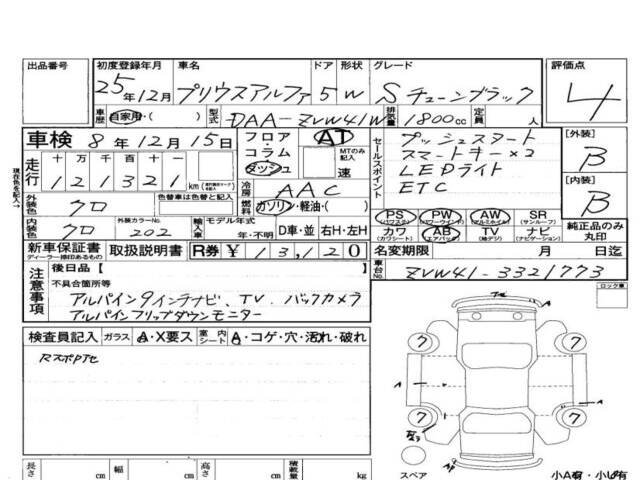 出品番号
初度登録年月 車名 ドア 形状 グレード 評価点
25年12月 プリウスアルファ 5 W Sチューンブラック 4
車歴 自家用・( ) 型式 DAA-ZVW41W 排気量 1800cc 定員 人
車検 8年12月15日
フロア・コラム・ダッシュ AT MTのみ記入 速
セールスポイント
プッシュスタート
スマートキー×2
LEDライト
ETC
[外装] B
[内装] B
現在色を記入→
走行 十万 万 千 百 十 一
121321 km
冷房 AAC
燃料 ガソリン・軽油・( )
外装色 クロ 色替車は色替と記入 色替車は元色( )
内装色 クロ 外装カラーNo. 202 輸入車 モデル年式 年・不明 D車・並 右H・左H
PS (パワステ) PW (パワーウインド) AW (アルミホイル) SR (サンルーフ)
カワ (カワシート) AB (エアバック) TV (地デジ) ナビ (ナビゲーション)
純正品のみ丸印
新車保証書 ディーラー捺印あるもの 取扱説明書 R券 ¥13,120
名変期限 月 日迄
車台No. ZVW41-3321773
注意事項
後日品[
不具合箇所等
アルパイン9インチナビ、TV、バックカメラ
アルパインフリップダウンモニター
ロック車
検査員記入 ガラス A・X要ス 室内シート A・コゲ・穴・汚れ・破れ
RスポPアセ
A
A
7
7
7
7
スペア
小A有・小U有
長さ cm 幅 cm 高さ cm 積載量 kg